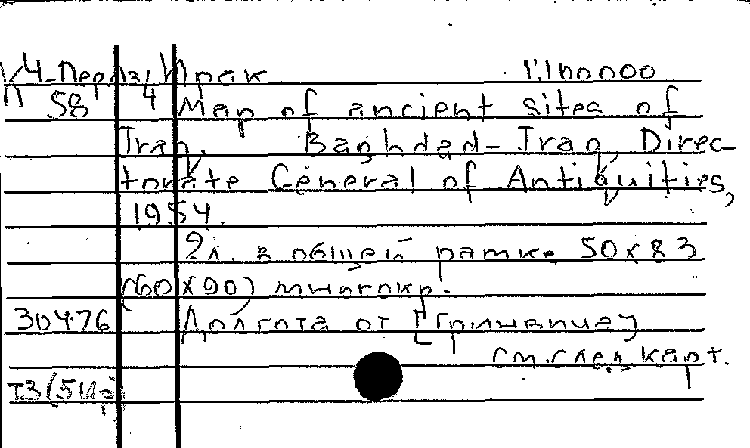 К4-Перд/ Ирак 1:1100000
П 58 4 Map of ancient sites of
Iraq. Baghdad-Iraq, Direc-
torate General of Antiquities,
1954.
2л. в общей рамке 50х83
(60х90) многокр.
30476 Долгота от [Гринвича]
см. след. карт.